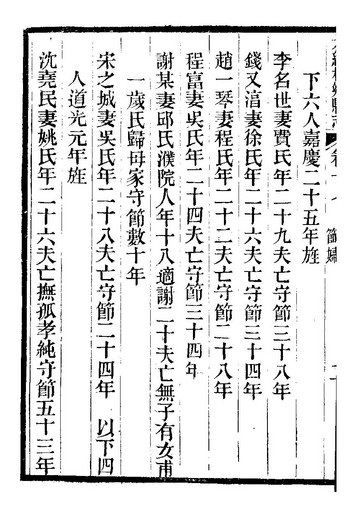 下六人嘉慶二十五年旌
李名世妻費氏年二十九夫亡守節三十八年
錢又涫妻徐氏年二十六夫亡守節三十四年
趙一琴妻程氏年二十二夫亡守節二十八年
程富妻吳氏年二十四夫亡守節三十四年
謝某妻邱氏濮院人年十八適謝二十夫亡無子有女甫
一歲氏歸母家守節數十年
宋之城妻吳氏年二十八夫亡守節二十四年 以下四
人道光元年旌
沈堯民妻姚氏年二十六夫亡撫孤孝純守節五十三年